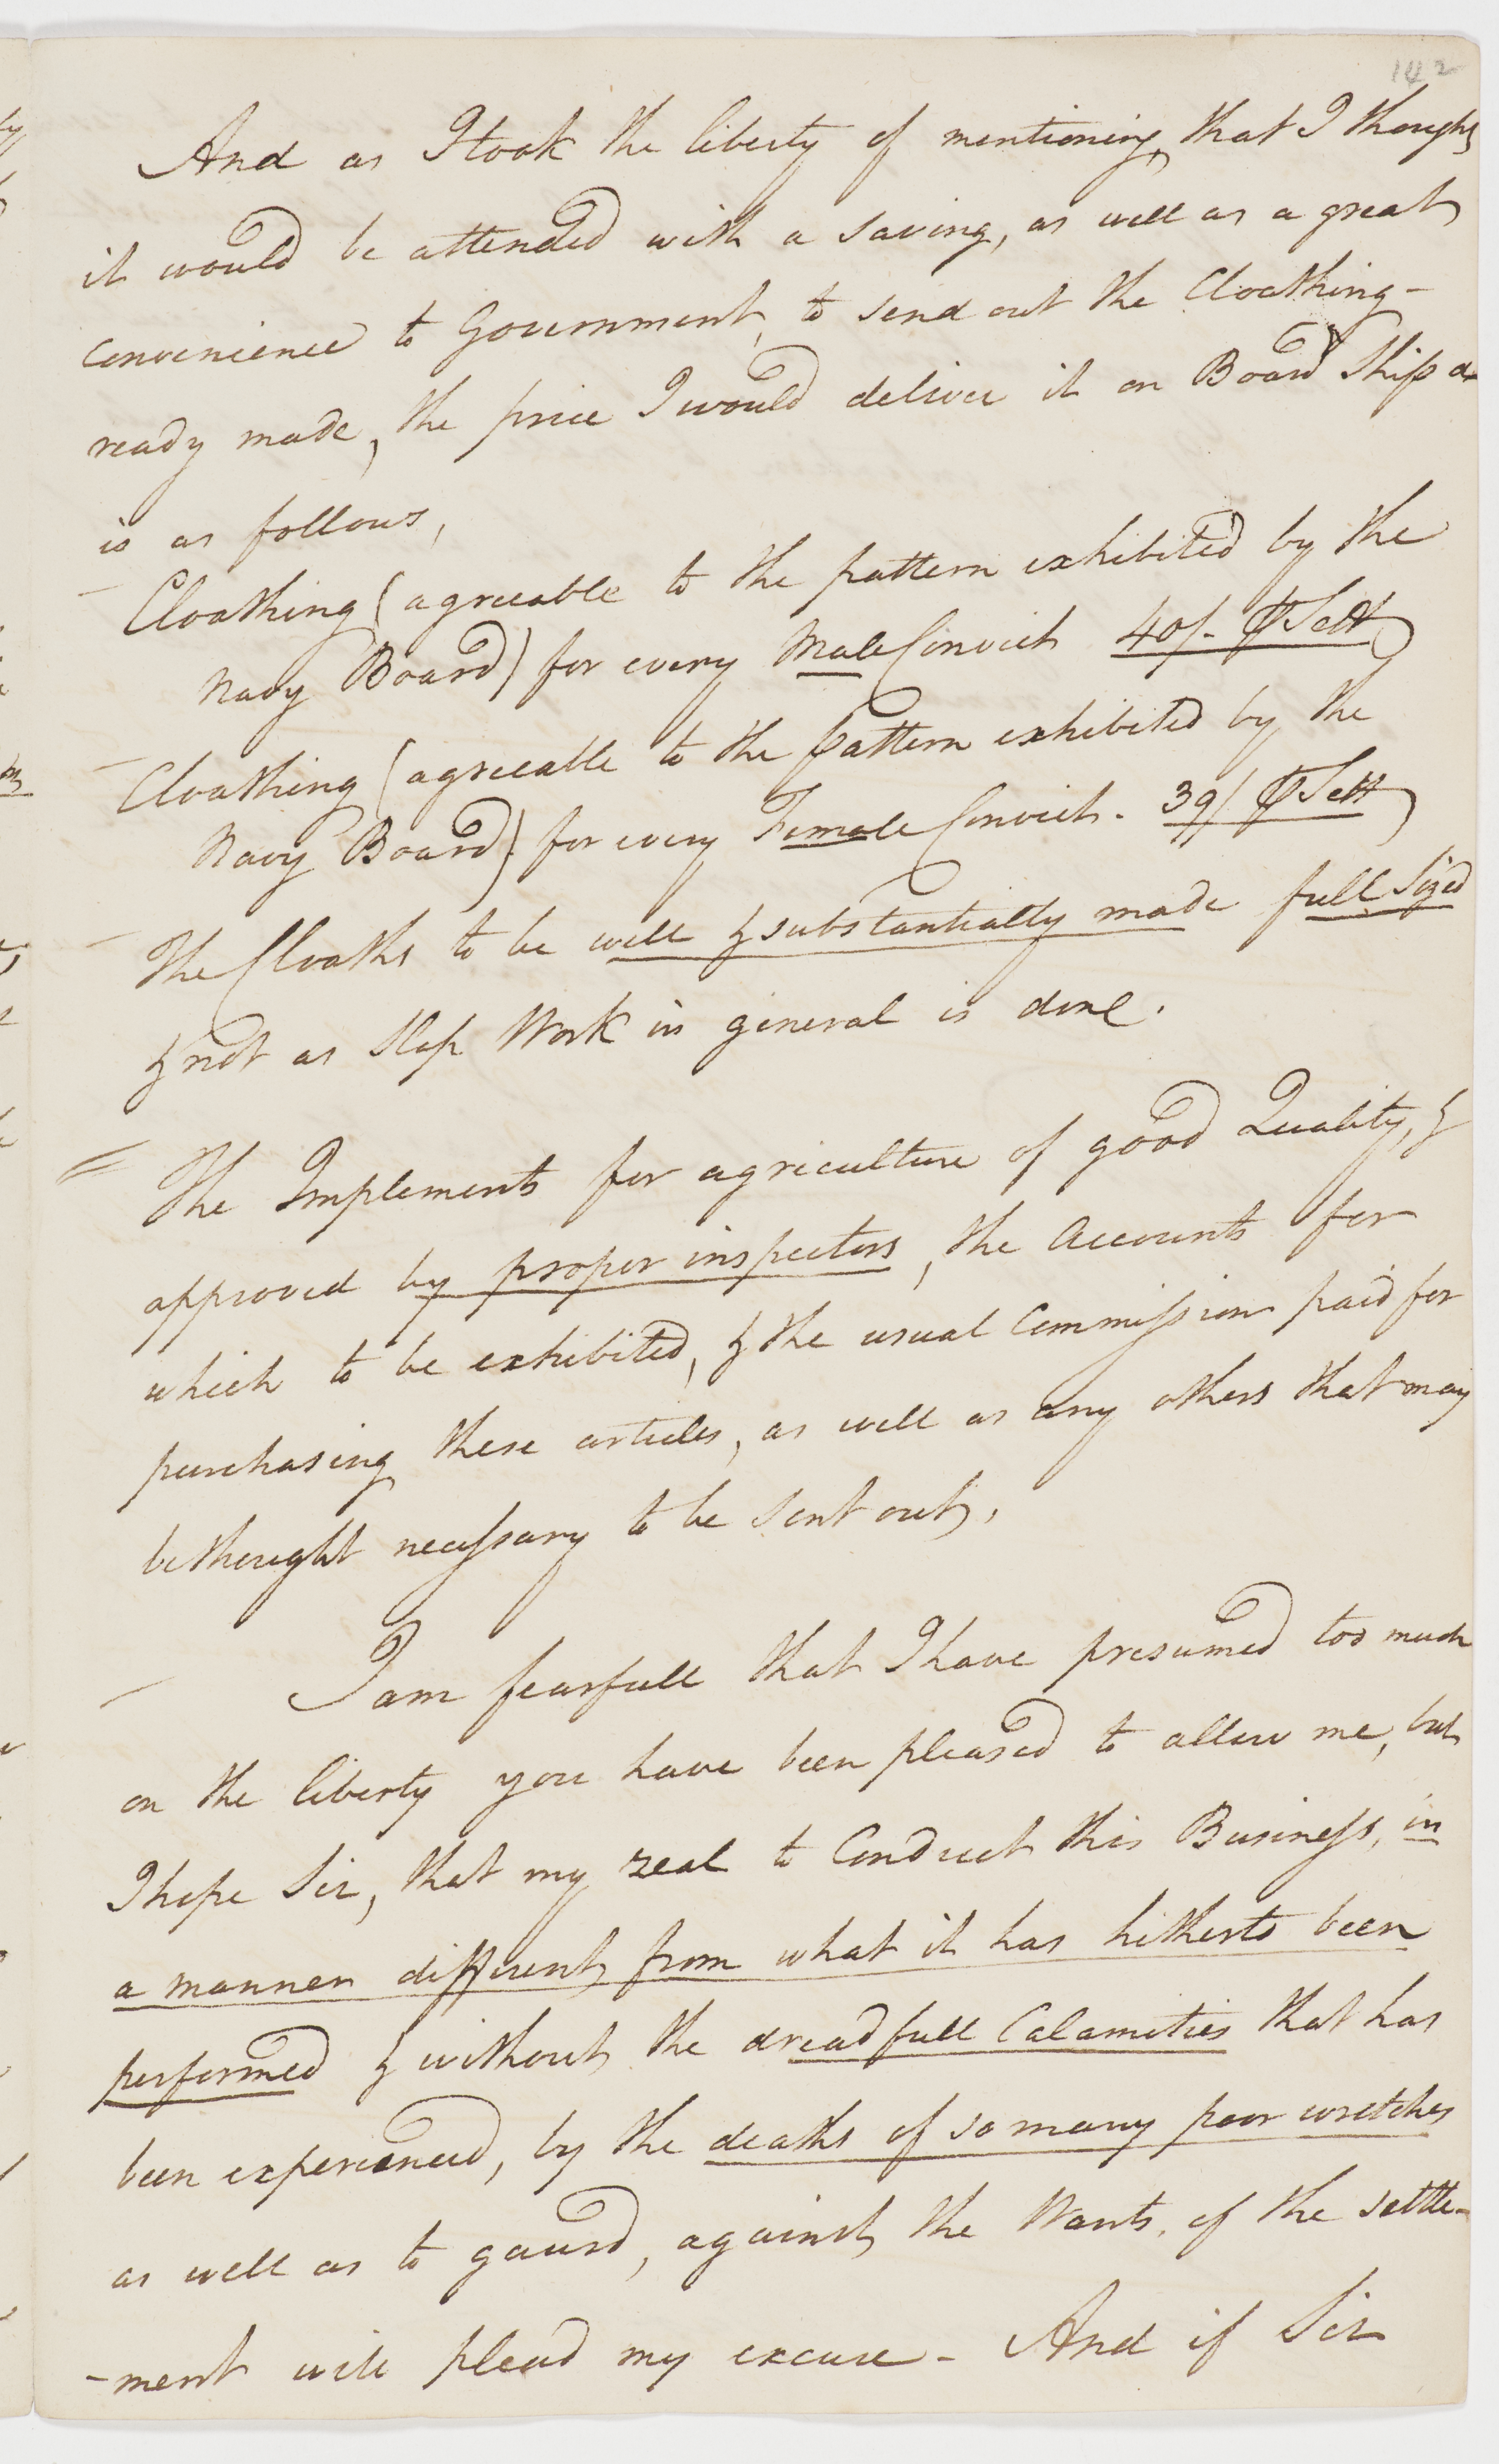 142
And as I took the liberty of mentioning, that I thought
it would be attended with a saving, as well as a great
convenience to Government, to send out the Cloathing-
ready made, the price I would deliver it on Board Ship at
is as follows,
Cloathing (agreeable to the pattern exhibited by the
Navy Board) for every Male Convict 40/- ⅌ Sett
Cloathing (agreeable to the pattern exhibited by the
Navy Board) for every Female Convict. 39/ ⅌ Sett
The Cloaths to be well & substantially made full sized
& not as Slop Work in general is done.
The Implements for agriculture of good Quality, &
approved by proper inspectors, the Accounts for
which to be exhibited, & the usual Commission paid for
purchasing these articles, as well as any others that may
be thought necessary to be sent out,
I am fearfull that I have presumed too much
on the liberty you have been pleased to allow me, but
I hope Sir, that my zeal to Conduct this Business, in
a manner different from what it has hitherto been
performed & without the dreadfull Calamities that has
been experienced, by the deaths of so many poor wretches
as well as to gaurd, against the Wants, of the settle-
-ment will plead my excuse - And if Sir